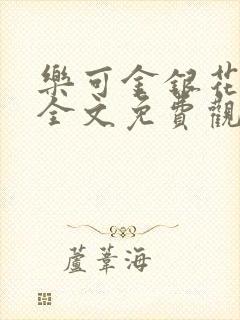 樂可金銀花
全文免費觀
蘆葦海